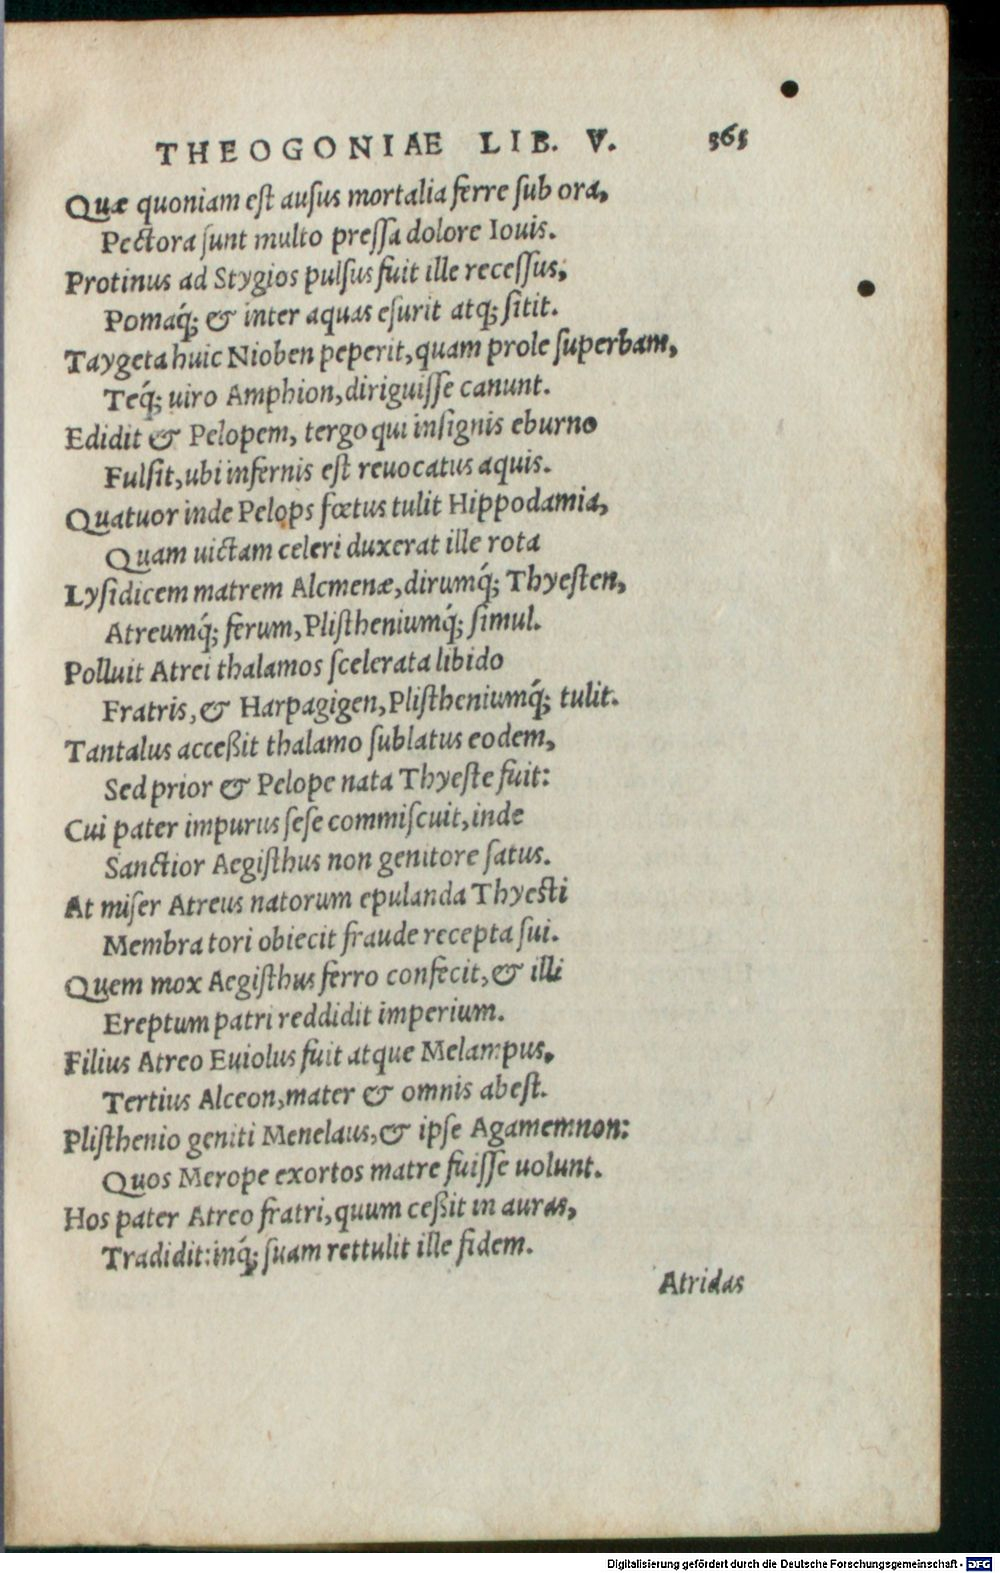 THEOGONIAE LIB. V. 365
Quæ quoniam est ausus mortalia ferre sub ora,
Pectora sunt multo pressa dolore Iouis.
Protinus ad Stygios pulsus fuit ille recessus,
Pomaq́; & inter aquas esurit atq; sitit.
Taygeta huic Nioben peperit, quam prole superbam,
Teq́; uiro Amphion, diriguisse canunt.
Edidit & Pelopem, tergo qui insignis eburno
Fulsit, ubi infernis est reuocatus aquis.
Quatuor inde Pelops fœtus tulit Hippodamia,
Quam uictam celeri duxerat ille rota
Lysidicem matrem Alcmenæ, dirumq́; Thyesten,
Atreumq́; ferum, Plistheniumq́; simul.
Polluit Atrei thalamos scelerata libido
Fratris, & Harpagigen, Plistheniumq́; tulit.
Tantalus acceßit thalamo sublatus eodem,
Sed prior & Pelope nata Thyeste fuit:
Cui pater impurus sese commiscuit, inde
Sanctior Aegisthus non genitore satus.
At miser Atreus natorum epulanda Thyesti
Membra tori obiecit fraude recepta sui.
Quem mox Aegisthus ferro confecit, & illi
Ereptum patri reddidit imperium.
Filius Atreo Euiolus fuit atque Melampus,
Tertius Alceon, mater & omnis abest.
Plisthenio geniti Menelaus, & ipse Agamemnon:
Quos Merope exortos matre fuisse uolunt.
Hos pater Atreo fratri, quum ceßit in auras,
Tradidit: inq́; suam rettulit ille fidem.
Atridas
Digitalisierung gefördert durch die Deutsche Forschungsgemeinschaft - DFG